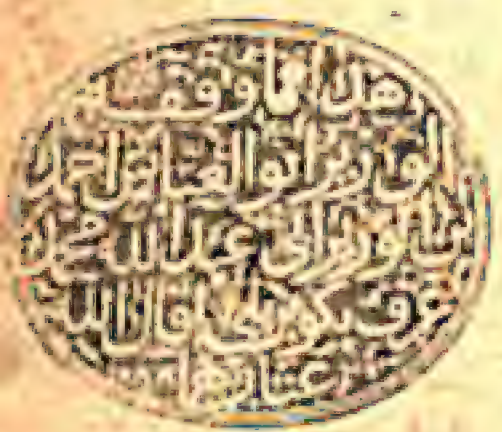 هذا ما وقفه
الوزير ابو العباس احمد
ابن الوزير ابى عبد الله محمد
عرف بكوپريلى اقال الله
عثارهما